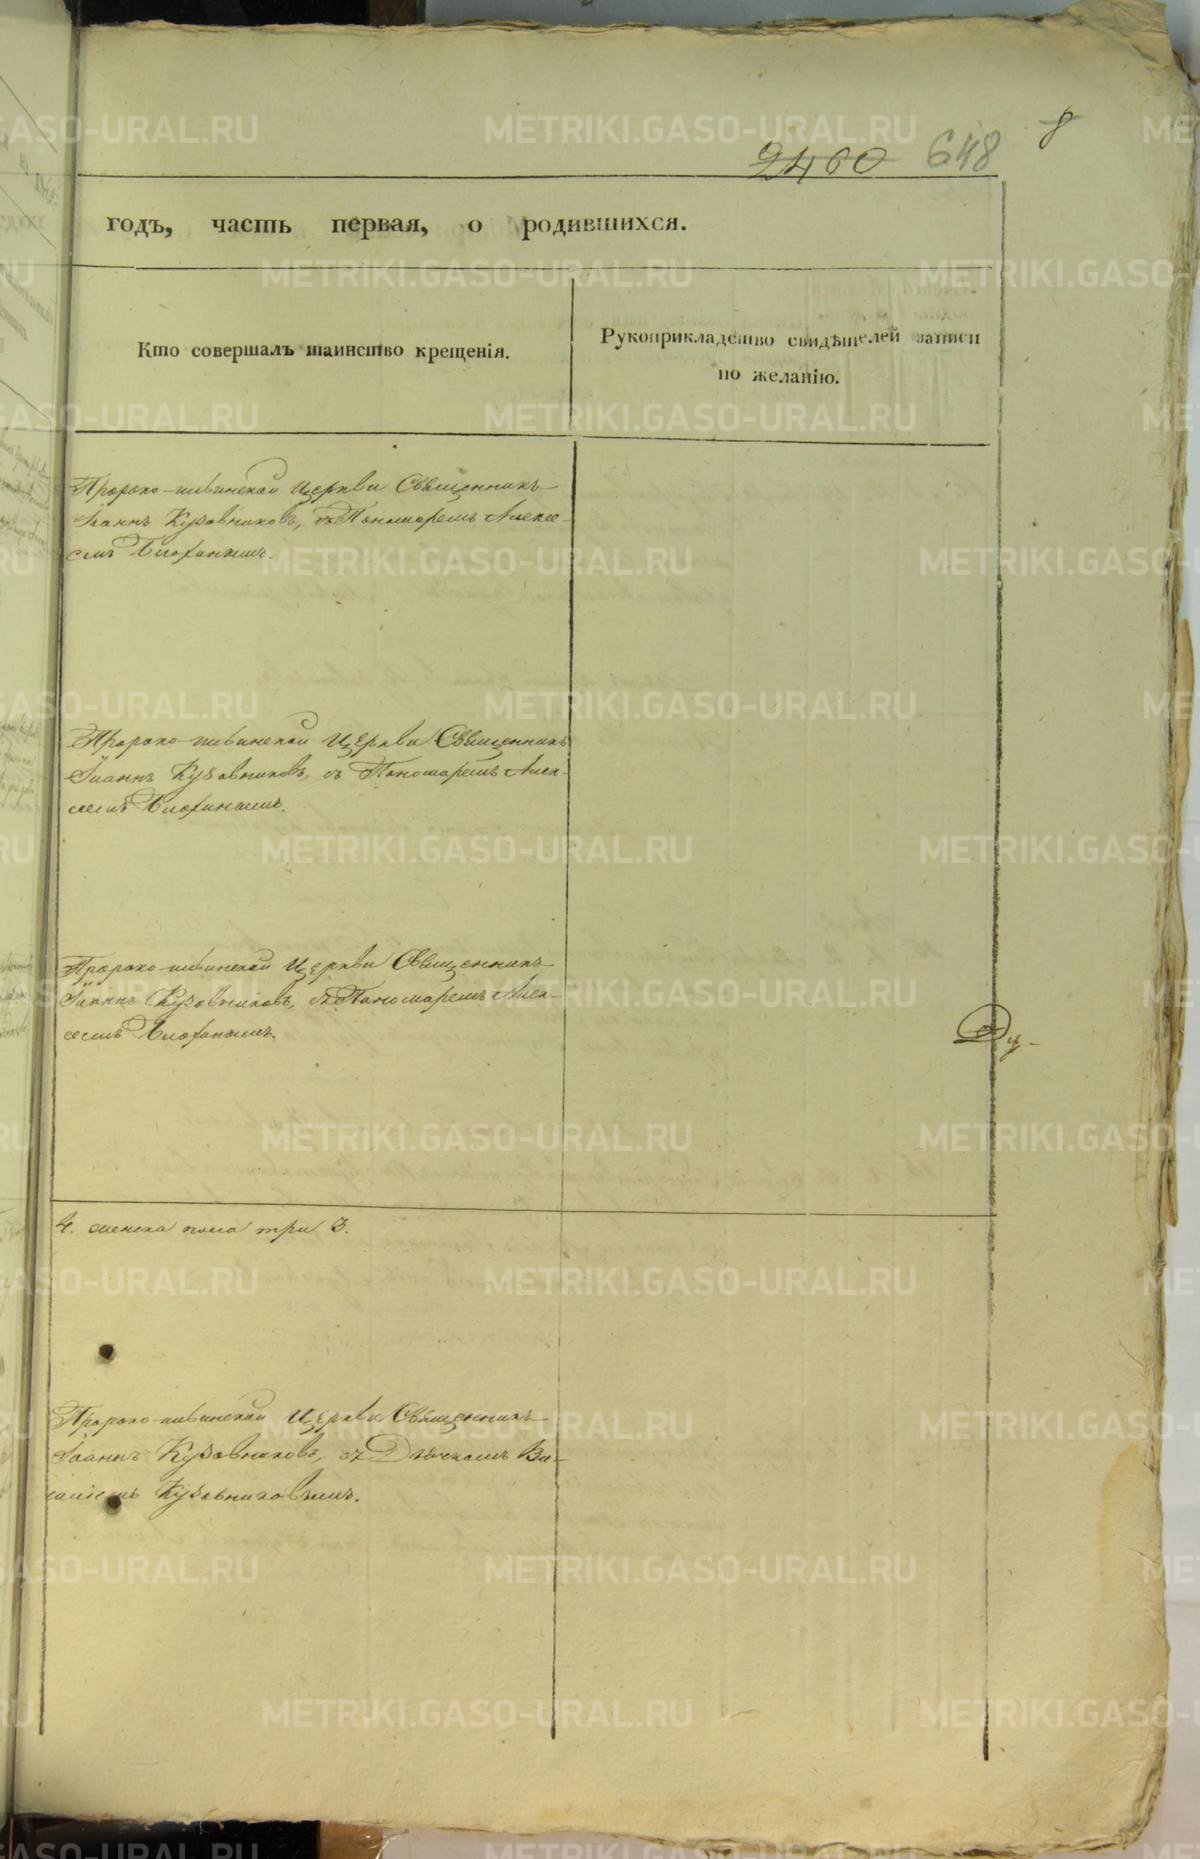 8
2460 648
годъ, часть первая, о родившихся.
Кто совершалъ таинство крещенія.
Рукоприкладство свидѣтелей записи
по желанію.
Пророко-ильинской Церкви Священникъ
Іоаннъ Кузовниковъ, съ Пономаремъ Алексе-
емъ
Пророко-ильинской Церкви Священникъ
Іоаннъ Кузовниковъ, съ Пономаремъ Алек-
сеемъ
Пророко-ильинской Церкви Священникъ
Іоаннъ Кузовниковъ, съ Пономаремъ Алек-
сеемъ
4. женска пола три 3.
Пророко-ильинской Церкви Священникъ
Іоаннъ Кузовниковъ, съ Дьячкомъ Ва-
силіемъ Кузовниковымъ.
METRIKI.GASO-URAL.RU